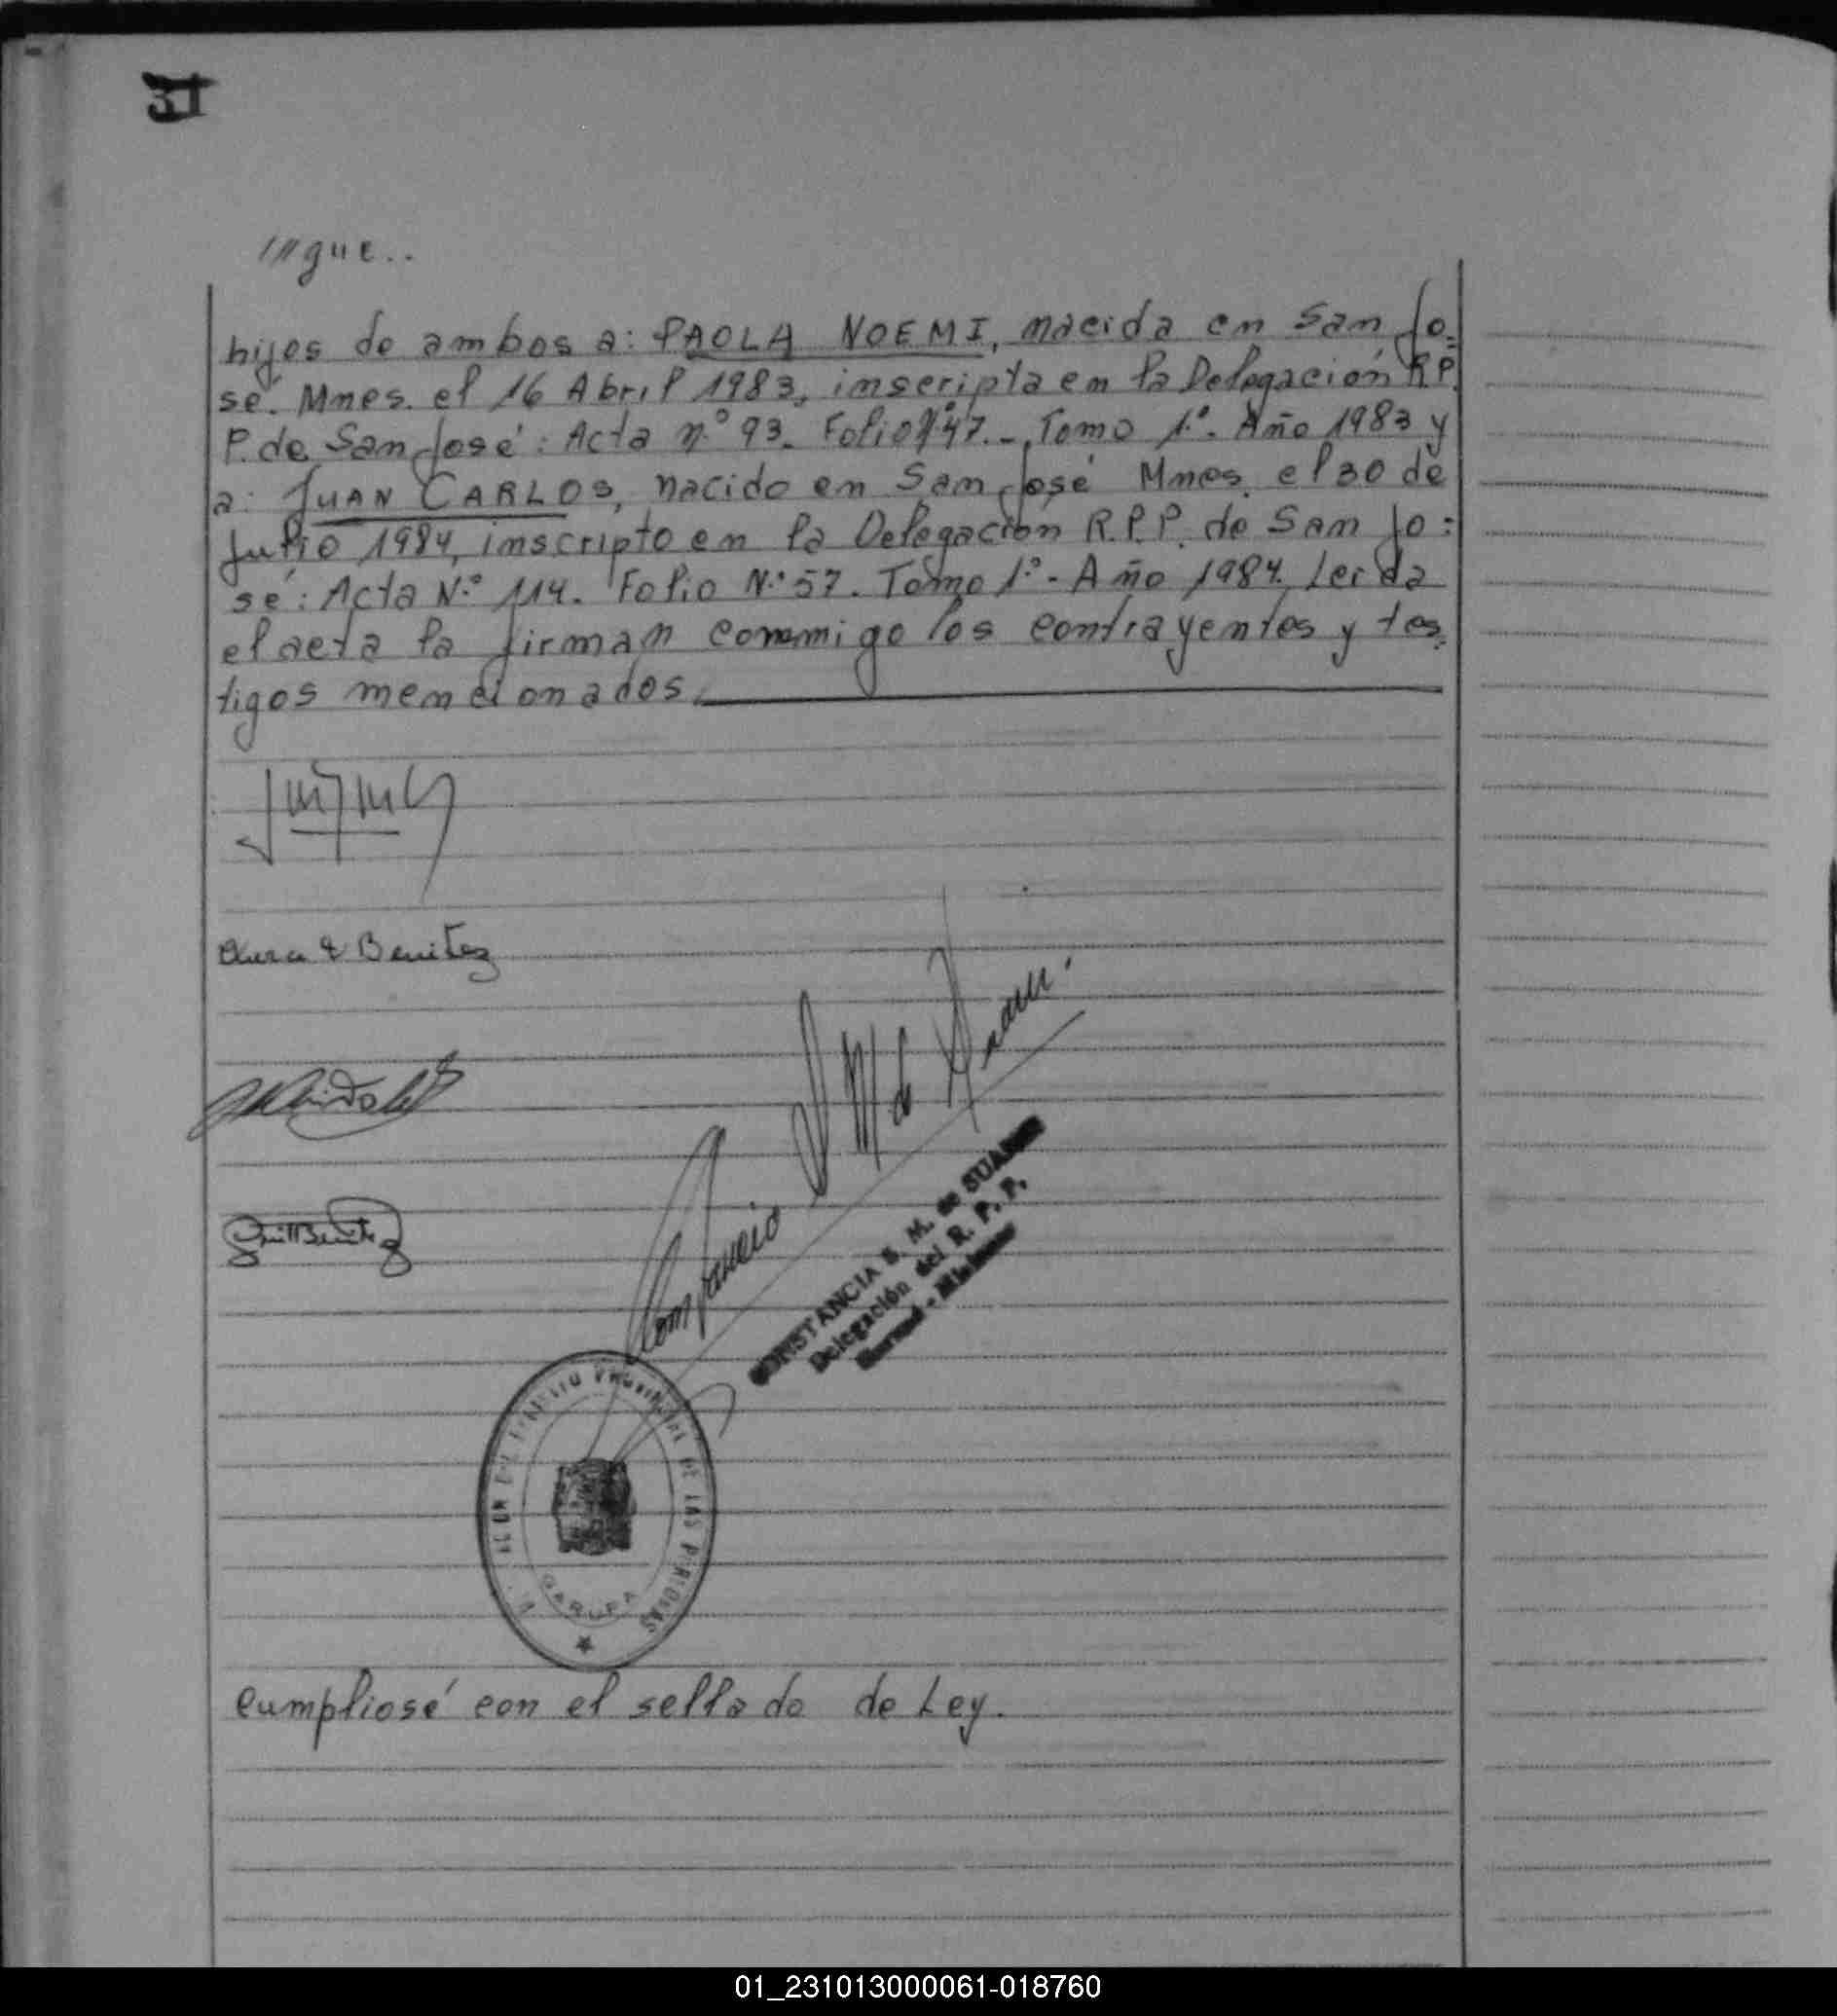 31
hijos de ambos a: PAOLA NOEMI, nacida en San Jo=
sé. Mnes. el 16 Abril 1983, inscripta en la Delegación R.P.
P. de San José: Acta n.° 93. Folio N° 47.-, Tomo 1.°. Año 1983 y
a: JUAN CARLOS, nacido en San José Mnes. el 30 de
Julio 1984, inscripto en la Delegación R.P.P. de San Jo=
sé: Acta N.° 114. Folio N.° 57. Tomo 1.°- Año 1984. Leida
el acta la firman conmigo los contrayentes y tes=
tigos mencionados.
Benitez
CONSTANCIA S. M. de SUAREZ
Delegación del R. P. P.
PROVINCIAL DE LAS PERSONAS
GARUPA
Cumpliosé con el sellado de Ley.
01_231013000061-018760